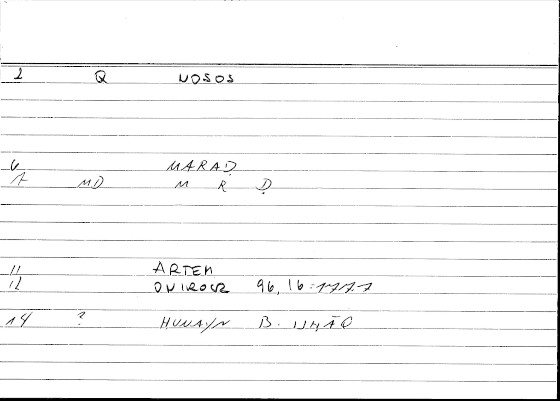 2 Q NOSOS
6 MARAḌ
7 MD M R Ḍ
11 ARTEM
12 ONIROCR 96, 16 : 1777
14 ? HUNAYN B. ISḤĀQ